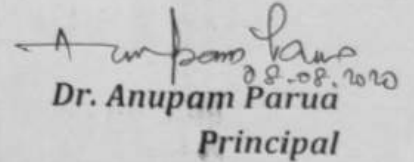 Anupam Parua
08.08.2020
Dr. Anupam Parua
Principal